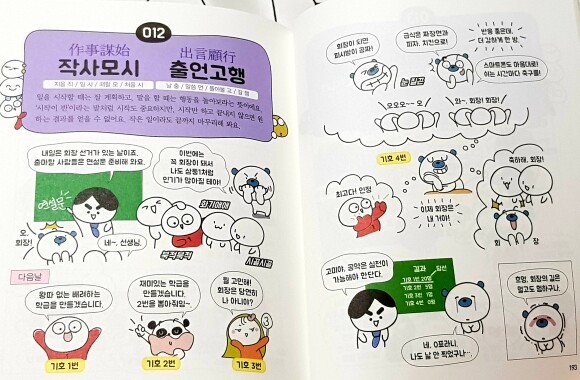 012
作事謀始 出言顧行
작사모시 출언고행
지을 작 / 일 사 / 꾀할 모 / 처음 시 날 출 / 말씀 언 / 돌아볼 고 / 갈 행
일을 시작할 때는 잘 계획하고, 말을 할 때는 행동을 돌아보라는 뜻이에요.
'시작이 반'이라는 말처럼 시작도 중요하지만, 시작만 하고 끝내지 않으면 원
하는 결과를 얻을 수 없어요. 작은 일이라도 끝까지 마무리해 봐요.
내일은 회장 선거가 있는 날이죠.
출마할 사람들은 연설문 준비해 와요.
연설문
오,
회장!
네~, 선생님.
이번에는
꼭 회장이 돼서
나도 삼둥1처럼
인기가 많아질 테야!
화기애애
쑥덕쑥덕
시끌시끌
다음날
왕따 없는 배려하는
학급을 만들겠습니다.
기호 1번
재미있는 학급을
만들겠습니다.
2번을 뽑아줘요~.
기호 2번
뭘 고민해!
회장은 당연히
나 아니야?
기호 3번
회장이 되면
피시방이 공짜!
급식은 짜장면과
피자, 치킨으로!
반응 좋은데,
더 강하게 한 방.
눈 질끈
스마트폰도 마음대로!
쉬는 시간마다 축구를!
오오오~ 오
와~, 회장! 회장!
기호 4번
최고다! 인정
이제 회장은
내 거야!
축하해, 회장!
회 장
고미야, 공약은 실천이
가능해야 한단다.
결과 당선
기호 1번 20표
기호 2번 5표
기호 3번 1표
기호 4번 0표
네, 0표라니,
나도 날 안 찍었구나….
흐엉, 회장의 길은
멀고도 험하구나.
193